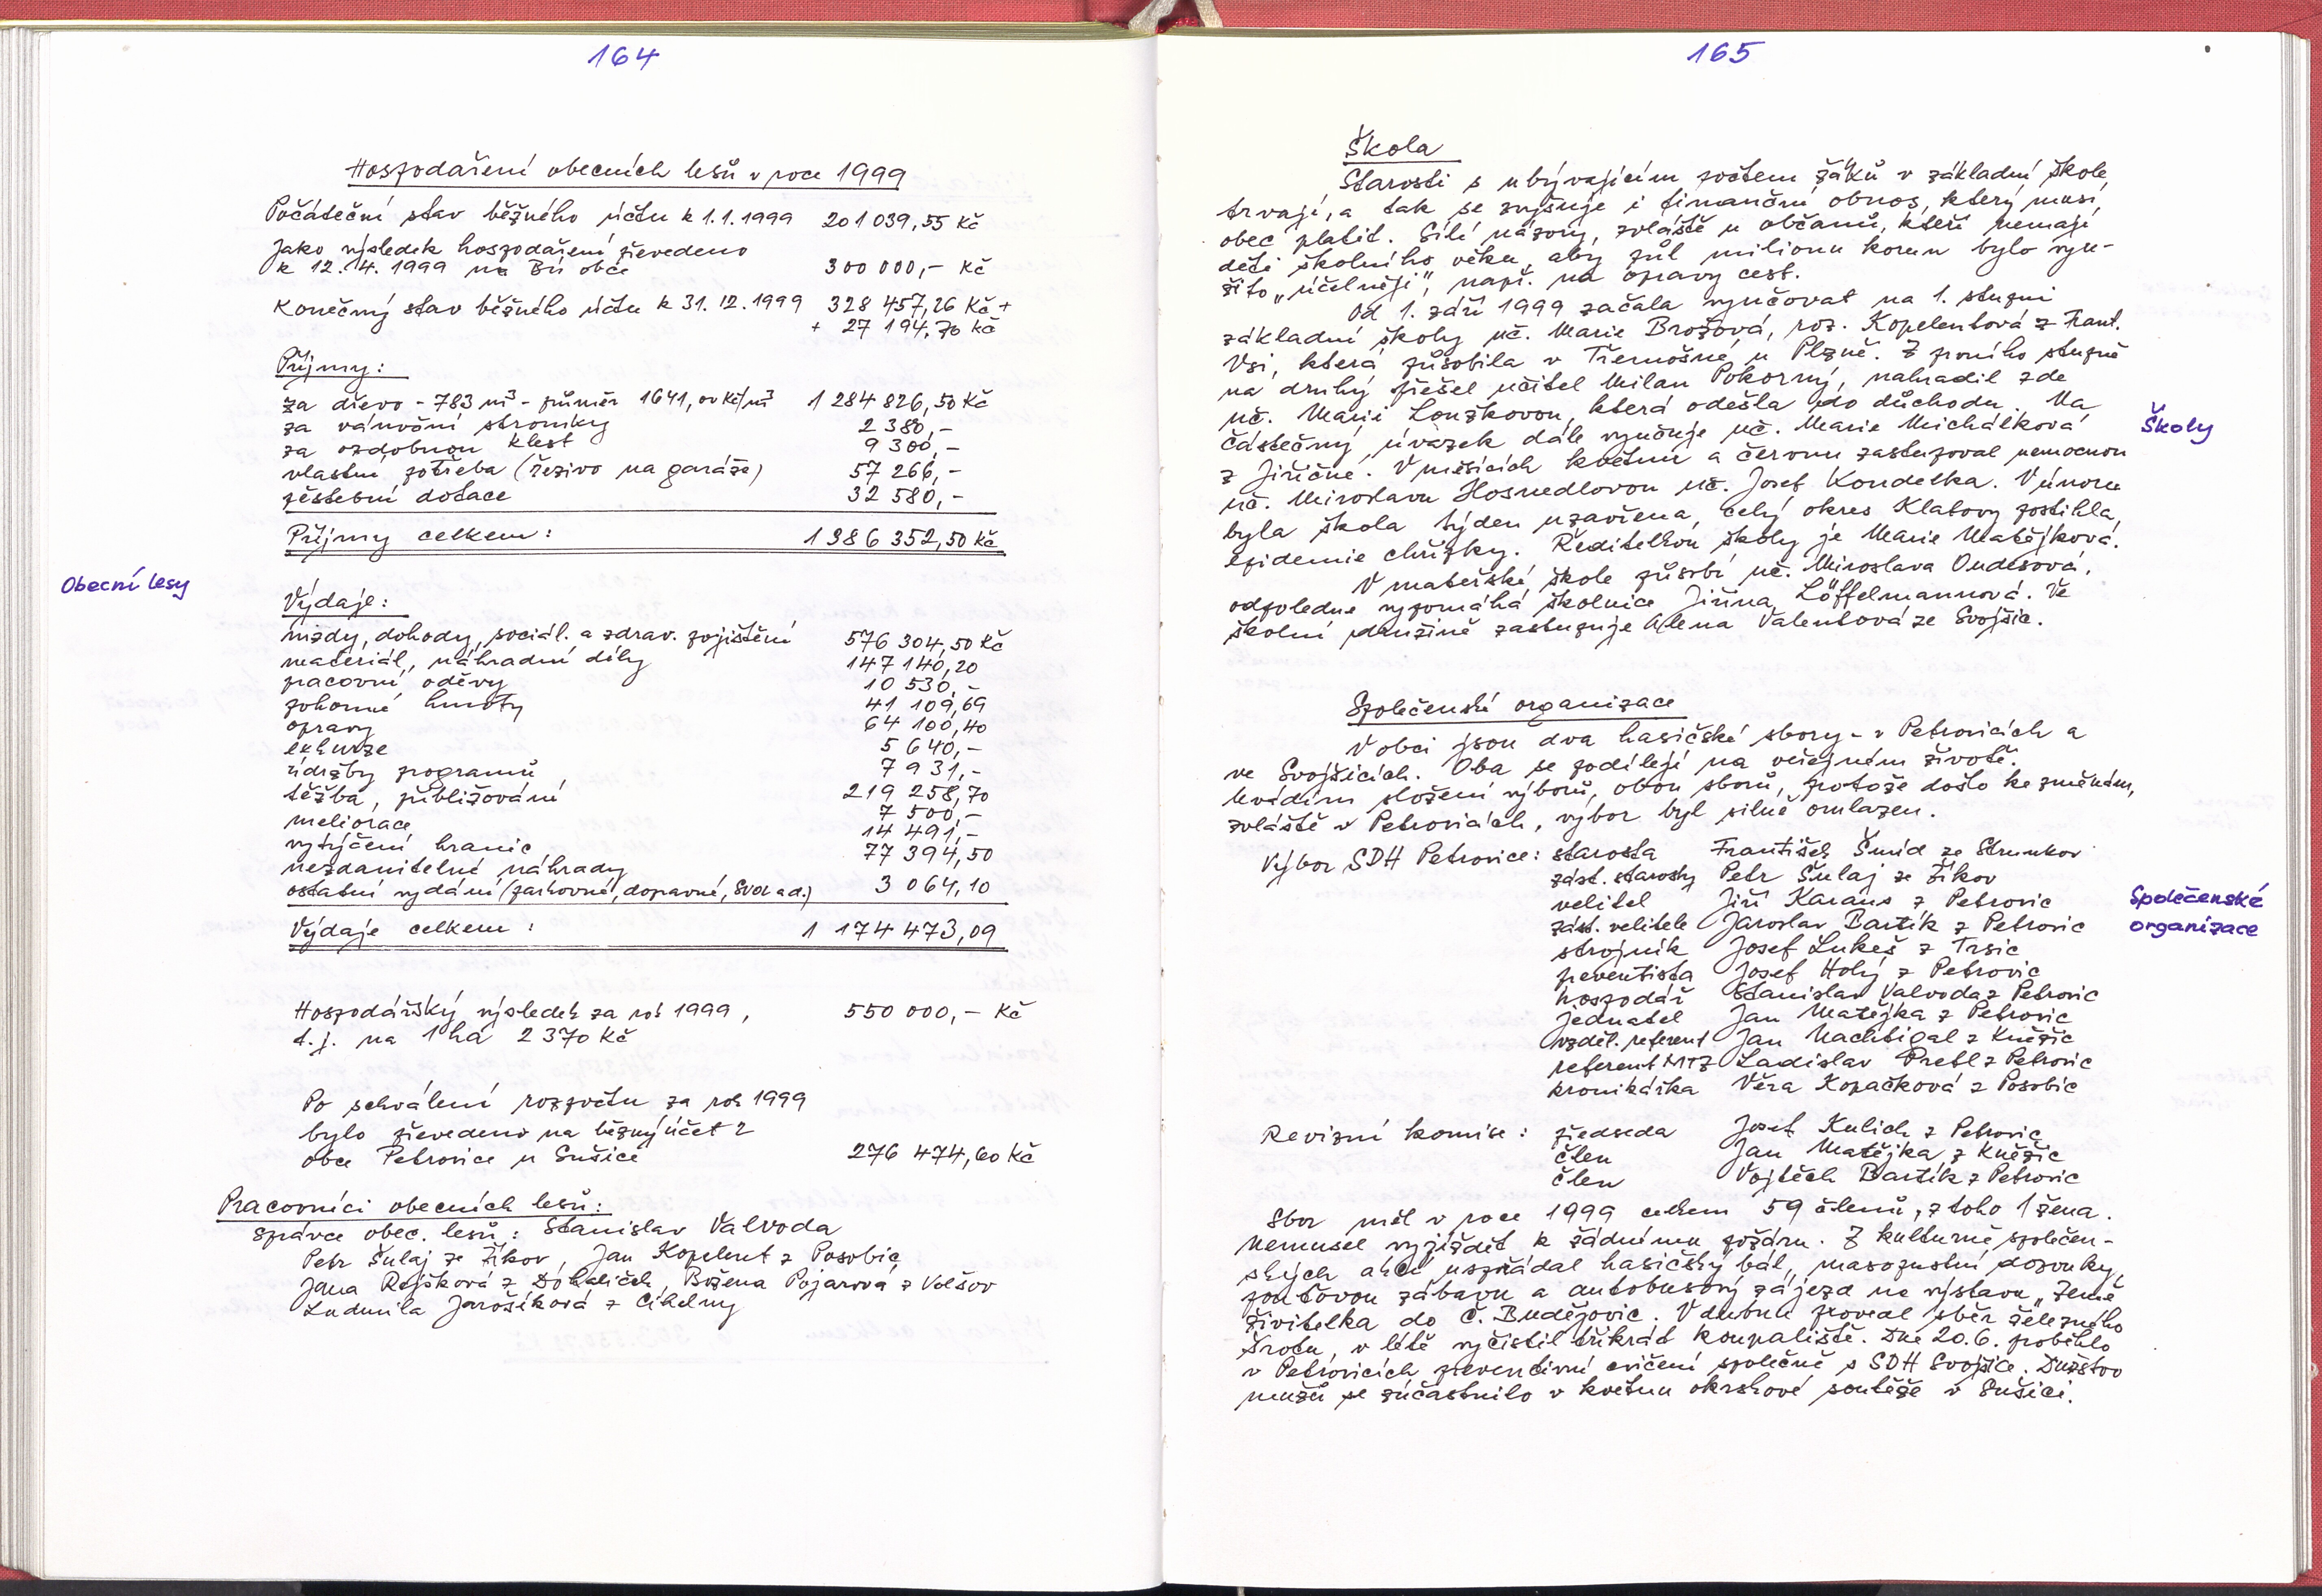 164
Hospodaření obecních lesů v roce 1999
Počáteční stav běžného účtu k 1.1.1999 201 039,55 Kč
Jako výsledek hospodaření převedeno
k 12.4.1999 na BÚ obce 300 000,- Kč
Konečný stav běžného účtu k 31.12.1999 328 457,26 Kč +
+ 27 194,70 Kč
Příjmy:
za dřevo - 783 m³ - průměr 1641,00 Kč/m³ 1 284 826,50 Kč
za vánoční stromky 2 380,-
za ozdobnou klest 9 300,-
vlastní potřeba (řezivo na garáže) 57 266,-
pěstební dotace 32 580,-
Příjmy celkem: 1 386 352,50 Kč
Obecní lesy
Výdaje:
mzdy, dohody, sociál. a zdrav. pojištění 576 304,50 Kč
materiál, náhradní díly 147 140,20
pracovní oděvy 10 530,-
pohonné hmoty 41 109,69
opravy 64 100,40
exkurze 5 640,-
údržby programů 7 931,-
těžba, přibližování 219 258,70
meliorace 7 500,-
vytýčení hranic 14 491,-
nezdanitelné náhrady 77 394,50
ostatní vydání (poštovné, dopravné, SVOL ad.) 3 064,10
Výdaje celkem: 1 174 473,09
Hospodářský výsledek za rok 1999, 550 000,- Kč
t.j. na 1 ha 2 370 Kč
Po schválení rozpočtu za rok 1999
bylo převedeno na běžný účet 2
obce Petrovice u Sušice 276 474,60 Kč
Pracovníci obecních lesů:
správce obec. lesů: Stanislav Valvoda
Petr Šulaj ze Žikov, Jan Kopelent z Posobic
Jana Rejšková z Dohaliček, Božena Pojarová z Volšov
Ludmila Jarošíková z Cihelny
165
Škola
Starosti s ubývajícím počtem žáků v základní škole
trvají, a tak se zvyšuje i finanční obnos, který musí
obec platit. Sílí názory, zvláště u občanů, kteří nemají
děti školního věku, aby půl milionu korun bylo vyu-
žito „účelněji", např. na opravy cest.
Od 1. září 1999 začala vyučovat na 1. stupni
základní školy uč. Marie Brožová, roz. Kopelentová z Frant.
Vsi, která působila v Třemošné u Plzně. Z prvního stupně
na druhý přešel učitel Milan Pokorný, nahradil zde
uč. Marii Louzkovou, která odešla do důchodu. Na
částečný úvazek dále vyučuje uč. Marie Michálková
z Jiřičné. V měsících květnu a červnu zastupoval nemocnou
uč. Miroslavu Hosnedlovou uč. Josef Kondelka. V únoru
byla škola týden uzavřena, celý okres Klatovy postihla
epidemie chřipky. Ředitelkou školy je Marie Matějková.
V mateřské škole působí uč. Miroslava Ondesová,
odpoledne vypomáhá školnice Jiřina Löffelmannová. Ve
školní družině zastupuje Alena Valentová ze Svojšic.
Školy
Společenské organizace
V obci jsou dva hasičské sbory - v Petrovicích a
ve Svojšicích. Oba se podílejí na veřejném životě.
Uvádím složení výborů, obou sborů, protože došlo ke změnám,
zvláště v Petrovicích, výbor byl silně omlazen.
Výbor SDH Petrovice: starosta František Šmíd ze Strunkov
zást. starosty Petr Šulaj ze Žikov
velitel Jiří Karaus z Petrovic
zást. velitele Jaroslav Bartík z Petrovic
strojník Josef Lukeš z Trsic
preventista Josef Holý z Petrovic
hospodář Stanislav Valvoda z Petrovic
jednatel Jan Matějka z Petrovic
vzděl. referent Jan Nachtigal z Kněžic
referent MTZ Ladislav Pretl z Petrovic
kronikářka Věra Kopačková z Posobic
Společenské
organizace
Revizní komise: předseda Josef Kulich z Petrovic
člen Jan Matějka z Kněžic
člen Vojtěch Bartík z Petrovic
Sbor měl v roce 1999 celkem 59 členů, z toho 1 žena.
Nemusel vyjíždět k žádnému požáru. Z kulturně společen-
ských akcí uspořádal hasičský bál, masopustní
pouťovou zábavu a autobusový zájezd na výstavu „Země
živitelka do Č. Budějovic. V dubnu provedl sběr železného
šrotu, v létě vyčistil třikrát koupaliště. Dne 20.6. proběhlo
v Petrovicích preventivní cvičení společně s SDH Svojšice. Družstvo
mužů se zúčastnilo v květnu okrskové soutěže v Sušici.